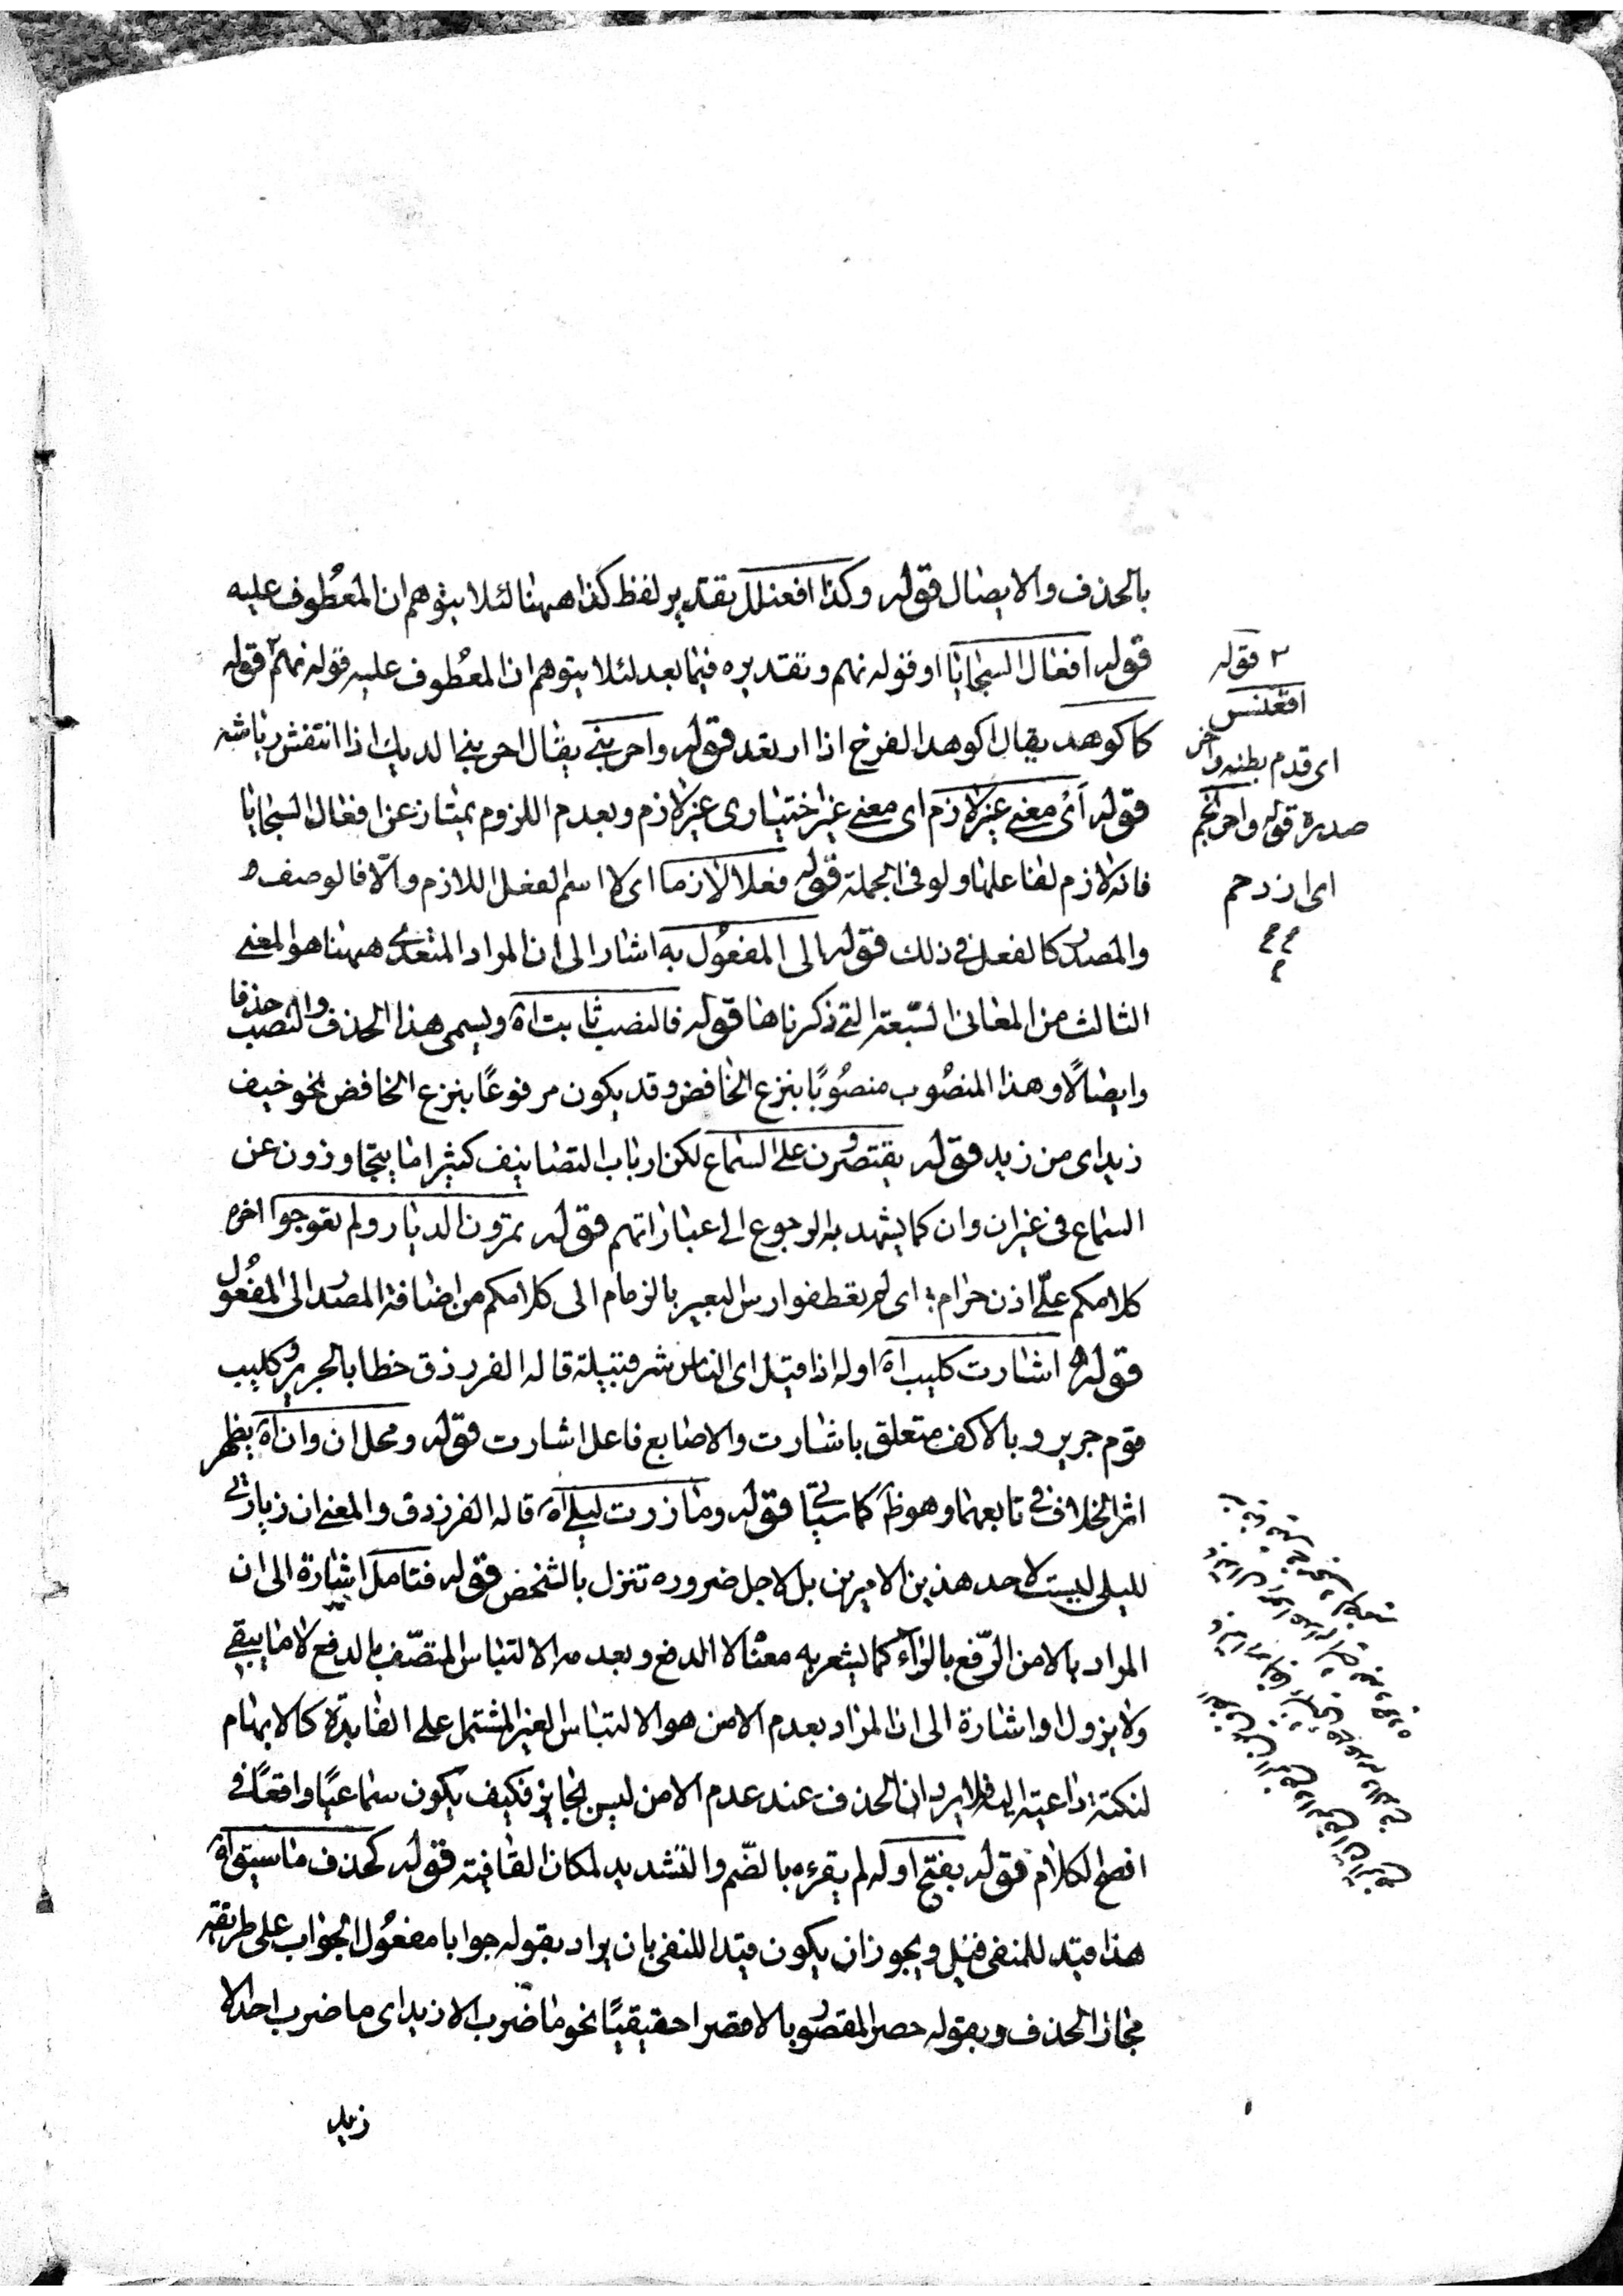 بالحذف والايصال قوله وكذا افعنلل بتقدير لفظ كذا ههنا لئلا يتوهم ان المعطوف عليه
قوله افعال السجايا او قوله نهم وتقديره فيما بعد لئلا يتوهم ان المعطوف عليه قوله نهم ٢ قوله
كاكوهد يقال اكوهد الفرخ اذا ارتعد قوله واحربنى يقال احربنى الديك اذا انتفش رياشه
قوله اى معنى غير لازم اى معنى غير اختيارى غير لازم وبعدم اللزوم يمتاز عن افعال السجايا
فانه لازم لفاعلها ولو فى الجملة قوله فعلا لازما اى لا اسم لفعل اللازم والّا فالوصف و
والمصدر كالفعل فى ذلك قوله الى المفعول به اشار الى ان المراد المتعدى ههنا هو المعنى
الثالث من المعانى السبعة التى ذكرناها قوله فالنصب ثابت اه ويسمى هذا الحذف والنصب حذفا
وايصالًا وهذا المنصوب منصوبًا بنزع الخافض وقد يكون مرفوعًا بنزع الخافض نحو خيف
زيد اى من زيد قوله يقتصرون على السماع لكن ارباب التصانيف كثيرا ما يتجاوزون عن
السماع فى غير ان وان كما يشهد به الرجوع الى عباراتهم قوله تمرون الديار ولم تعوجوا اخره
كلامكم علىّ اذن حرام اى لم تعطفوا رس البعير بالزمام الى كلامكم من اضافة المصدر الى المفعول
قوله اشارت كليب اه اوله اذا قيل اى الناس شر قبيلة قاله الفرزدق خطابا لجرير وكليب
قوم جرير وبالاكف متعلق باشارت والاصابع فاعل اشارت قوله ومحل ان وان اه يظهر
اثر الخلاف فى تابعهما وهو ظ كما سياتى قوله وما زرت ليلى اه قاله الفرزدق والمعنى ان زيارتى
لليلى ليست لاحد هذين الامرين بل لاجل ضروره تنزل بالشخص قوله فتامل اشارة الى ان
المراد بالامن الرّفع بالراء كما يشعر به معنى لا الدفع وبعدمه الالتباس المتصّف بالدفع لا ما يبقى
ولا يزول او اشارة الى ان المراد بعدم الامن هو الالتباس الغير المشتمل على الفايدة كالابهام
لنكتة داعية اليه فلا يرد ان الحذف عند عدم الامن ليس بجايز فكيف يكون سماعيًا واقعًا فى
افصح الكلام قوله بفتح اوله لم يقرء بالضّم والتشديد لمكان القافية قوله كحذف ما سيق اه
هذا قيد للمنفى قيل ويجوز ان يكون قيدا للنفى بان يراد بقوله جوابا مفعول الجواب على طريقة
مجاز الحذف وبقوله حصر المقصور بالا قصرا حقيقيًا نحو ما ضرب الا زيد اى ما ضرب احد الا
زيد
٢ قوله
اقعنسس
اى قدم بطنه واخر
صدره قوله واحرنجم
اى ازدحم